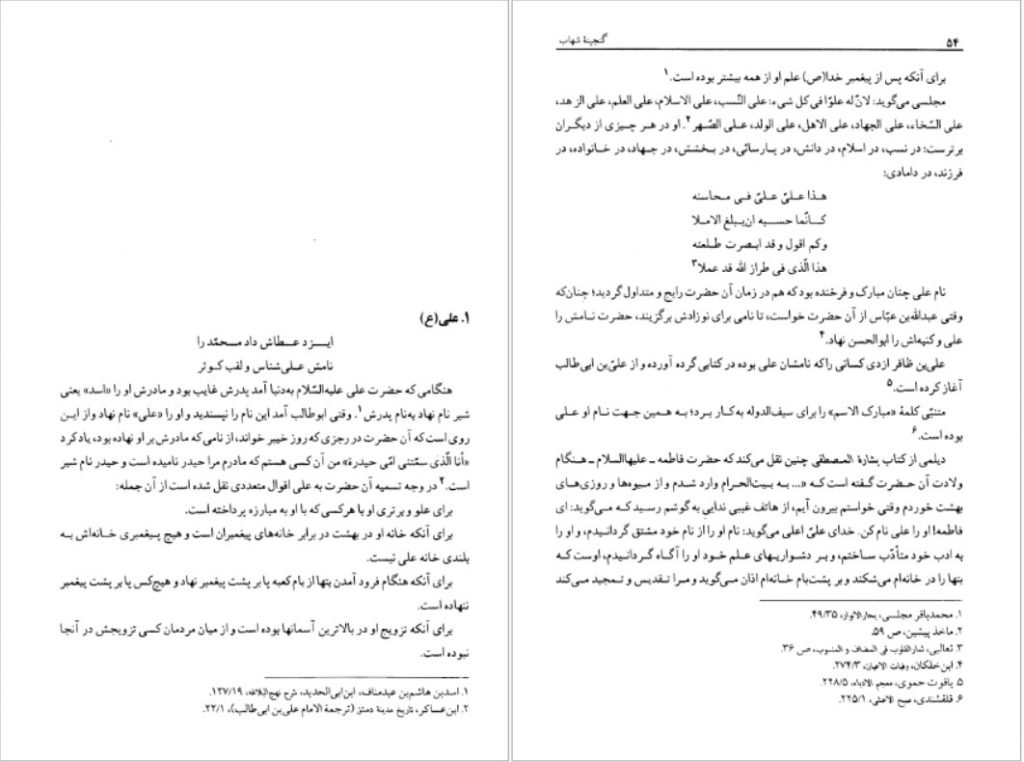 ۱. علی(ع)
ایـزد عـطاش داد مـحمّد را
نامش علی‌شناس و لقب کوثر
هنگامی که حضرت علی علیه‌السّلام به‌دنیا آمد پدرش غایب بود و مادرش او را «اسد» یعنی
شیر نام نهاد به‌نام پدرش۱. وقتی ابوطالب آمد این نام را نپسندید و او را «علی» نام نهاد و از این
روی است که آن حضرت در رجزی که روز خیبر خواند، از نامی که مادرش بر او نهاده بود، یاد کرد
«أنا الّذی سمّتنی امّی حیدرة» من آن کسی هستم که مادرم مرا حیدر نامیده است و حیدر نام شیر
است.۲ در وجه تسمیه آن حضرت به علی اقوال متعددی نقل شده است از آن جمله:
برای علو و برتری او با هرکسی که با او به مبارزه پرداخته است.
برای آنکه خانه او در بهشت در برابر خانه‌های پیغمبران است و هیچ پیغمبری خانه‌اش به
بلندی خانه علی نیست.
برای آنکه هنگام فرود آمدن بتها از بام کعبه پا بر پشت پیغمبر نهاد و هیچ‌کس پا بر پشت پیغمبر
ننهاده است.
برای آنکه تزویج او در بالاترین آسمانها بوده است و از میان مردمان کسی تزویجش در آنجا
نبوده است.
۱. اسدبن هاشم‌بن عبدمناف، ابن‌ابی‌الحدید، شرح نهج‌البلاغه، ۱۲۷/۱۹.
۲. ابن‌عساکر، تاریخ مدینة دمشق (ترجمة الامام علی‌بن ابی‌طالب)، ۲۲/۱.
۵۴ گنجینهٔ شهاب
برای آنکه پس از پیغمبر خدا(ص) علم او از همه بیشتر بوده است.۱
مجلسی می‌گوید: لانّ له علوّا فی کل شیء: علی النّسب، علی الاسلام، علی العلم، علی الزهد،
علی السّخاء، علی الجهاد، علی الاهل، علی الولد، عـلی الصّـهر۲. او در هر چیزی از دیگران
برترست: در نسب، در اسلام، در دانش، در پارسائی، در بخشش، در جهاد، در خانواده، در
فرزند، در دامادی:
هـذا عـلیّ عـلیّ فـی مـحاسنه
کـانّما حسـبه ان‌یـبلغ الامـلا
وکم اقول و قد ابـصرت طـلعته
هذا الّذی فی طراز الله قد عملا۳
نام علی چنان مبارک و فرخنده بود که هم در زمان آن حضرت رایج و متداول گردید؛ چنان‌که
وقتی عبدالله‌بن عبّاس از آن حضرت خواست، تا نامی برای نوزادش برگزیند، حضرت نامش را
علی و کنیه‌اش را ابوالحسن نهاد.۴
علی‌بن ظافر ازدی کسانی را که نامشان علی بوده در کتابی گرده آورده و از علیّ‌بن ابی‌طالب
آغاز کرده است.۵
متنبّی کلمهٔ «مبارک الاسم» را برای سیف‌الدوله به‌کار برد؛ بـه هـمین جـهت نـام او عـلی
بوده است.۶
دیلمی از کتاب بشارة المصطفی چنین نقل می‌کند که حضرت فاطمه ـ علیهاالسلام ـ هـنگام
ولادت آن حـضرت گـفته است کـه «... بـه بـیت‌الحرام وارد شـدم و از مـیوه‌ها و روزی‌های
بهشت خوردم وقتی خواستم بیرون آیم، از هاتف غیبی ندایی به گوشم رسید کـه مـی‌گوید: ای
فاطمه! او را علی نام کن. خدای علیّ اعلی می‌گوید: نام او را از نام خود مشتق گردانیدم، و او را
به ادب خود متأدّب ساختم، و بـر دشـواریهای عـلم خـود او را آگـاه گـردانـیدم، اوست که
بتها را در خانه‌ام می‌شکند و بر پشت‌بام خانه‌ام اذان می‌گوید و مـرا تـقدیس و تـمجید می‌کند
۱. محمدباقر مجلسی، بحارالانوار، ۴۹/۳۵.
۲. ماخذ پیشین، ص ۵۹.
۳. ثعالبی، ثمارالقلوب فی المضاف و المنسوب، ص ۳۶.
۴. ابن‌خلکان، وفیات الاعیان، ۲۷۴/۳.
۵. یاقوت حموی، معجم الادباء، ۲۲۸/۵.
۶. قلقشندی، صبح الاعشی، ۲۲۵/۱.